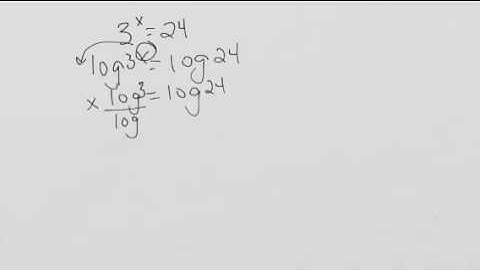 3^x = 24
log 3^x = log 24
x log 3 = log 24
log